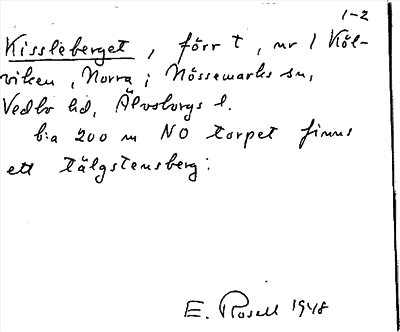 1-2
Kissleberget, förr t, nr 1 Köl-
viken, Norra; Nössemarks sn,
Vedbo hd, Älvsborgs l.
b:a 200 m NO torpet finns
ett tälgstensberg:
E. Rosell 1948